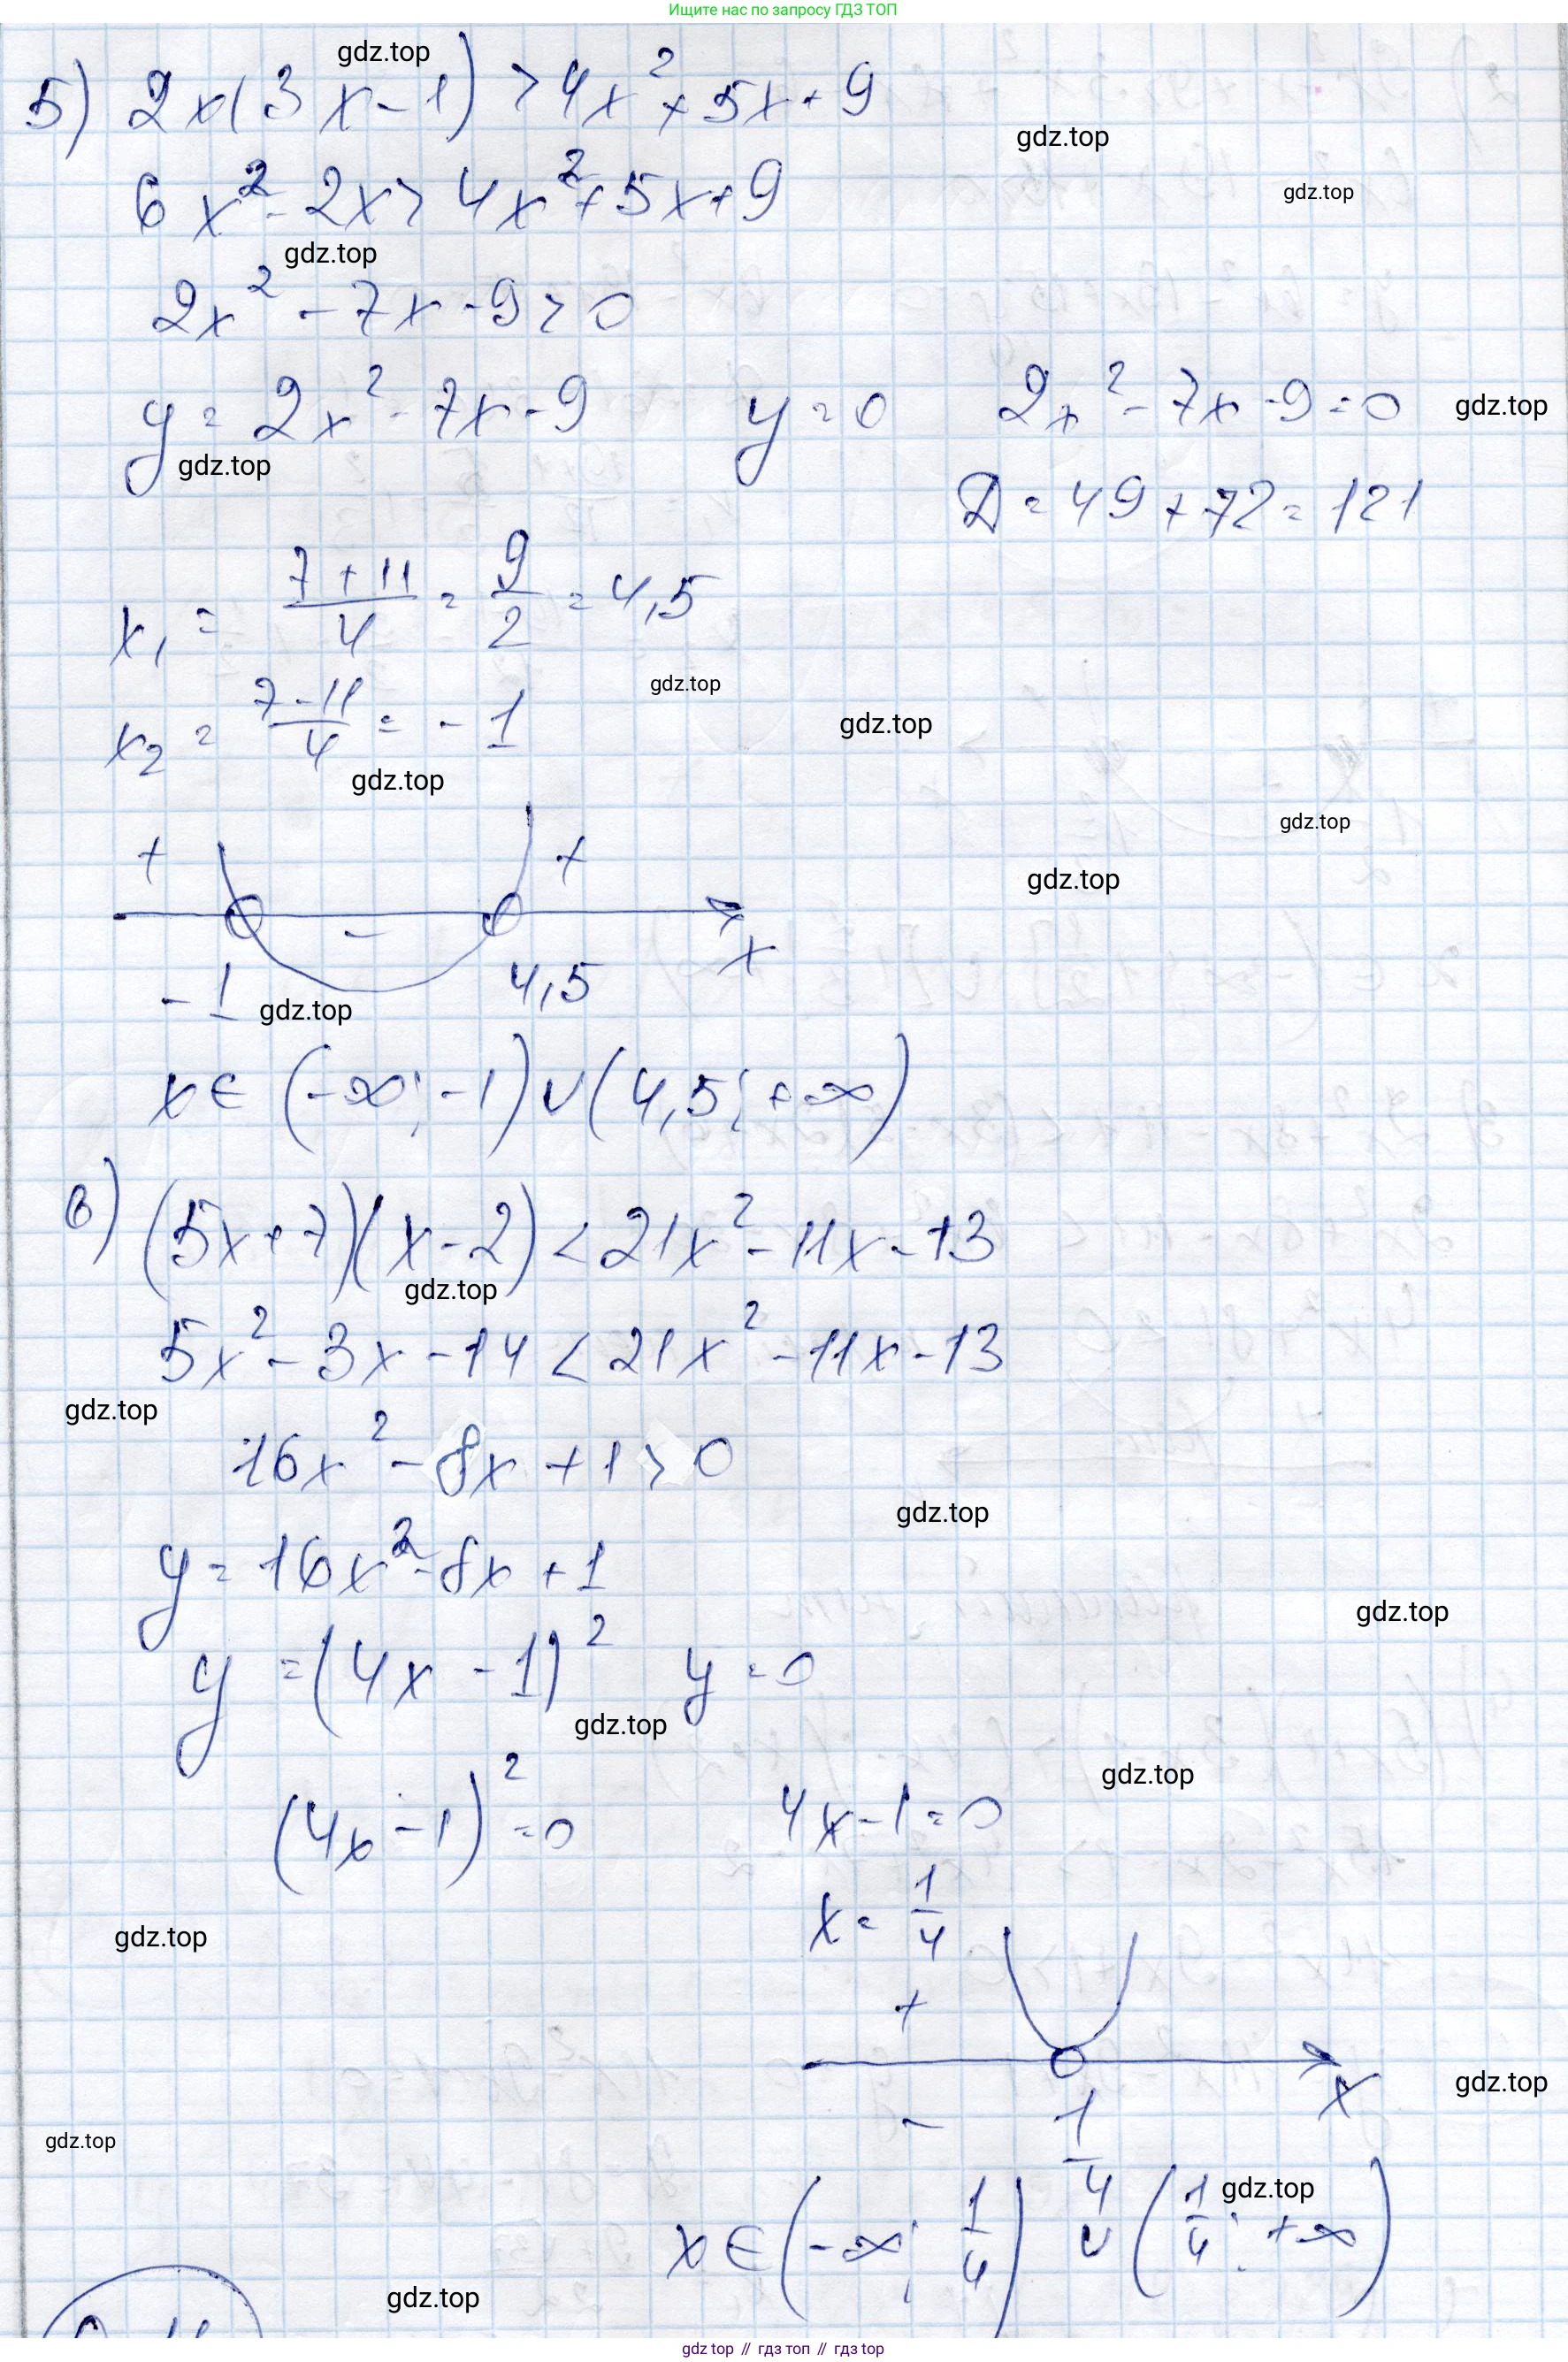 Ищите нас по запросу ГДЗ ТОП
gdz.top
5) 2x(3x-1) > 4x²+5x+9
gdz.top
6x²-2x > 4x²+5x+9
gdz.top
gdz.top
2x²-7x-9>0
y=2x²-7x-9 y=0 2x²-7x-9=0
gdz.top
gdz.top
D=49+72=121
x₁ = (7+11)/4 = 9/2 = 4,5
gdz.top
x₂ = (7-11)/4 = -1
gdz.top
gdz.top
gdz.top
+ +
gdz.top
-
x
-1 4,5
gdz.top
x∈(-∞; -1)∪(4,5; +∞)
6) (5x+7)(x-2) < 21x²-11x-13
gdz.top
5x²-3x-14 < 21x²-11x-13
gdz.top
16x²-8x+1>0
gdz.top
y=16x²-8x+1
gdz.top
y=(4x-1)² y=0
gdz.top
gdz.top
(4x-1)²=0 4x-1=0
x=1/4
gdz.top
+
x
gdz.top
- 1/4
gdz.top
gdz.top
x∈(-∞; 1/4)∪(1/4; +∞)
gdz.top
gdz top // гдз топ // гдз top